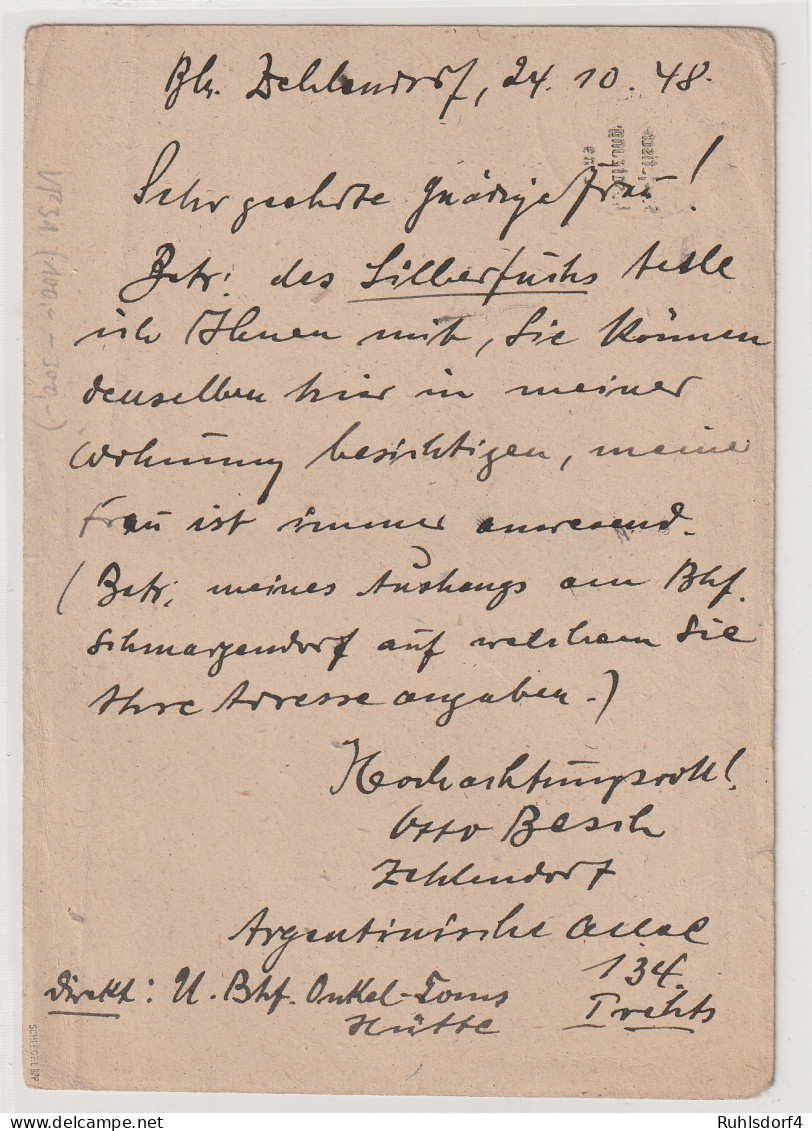 Bln. Zehlendorf, 24.10.48.
Sehr geehrte Gnädige Frau!
Betr. des Silberfuchs teile
ich Ihnen mit, Sie können
denselben hier in meiner
Wohnung besichtigen, meine
Frau ist immer anwesend.
(Betr. meines Aushangs am Bhf.
Schmargendorf auf welchem Sie
Ihre Adresse angaben.)
Hochachtungsvoll!
Otto Besch
Zehlendorf
Argentinische Allee
134.
direkt: U. Bhf. Onkel-Toms
Hütte
I rechts
SCHLEGEL BPP
Ruhlsdorf4